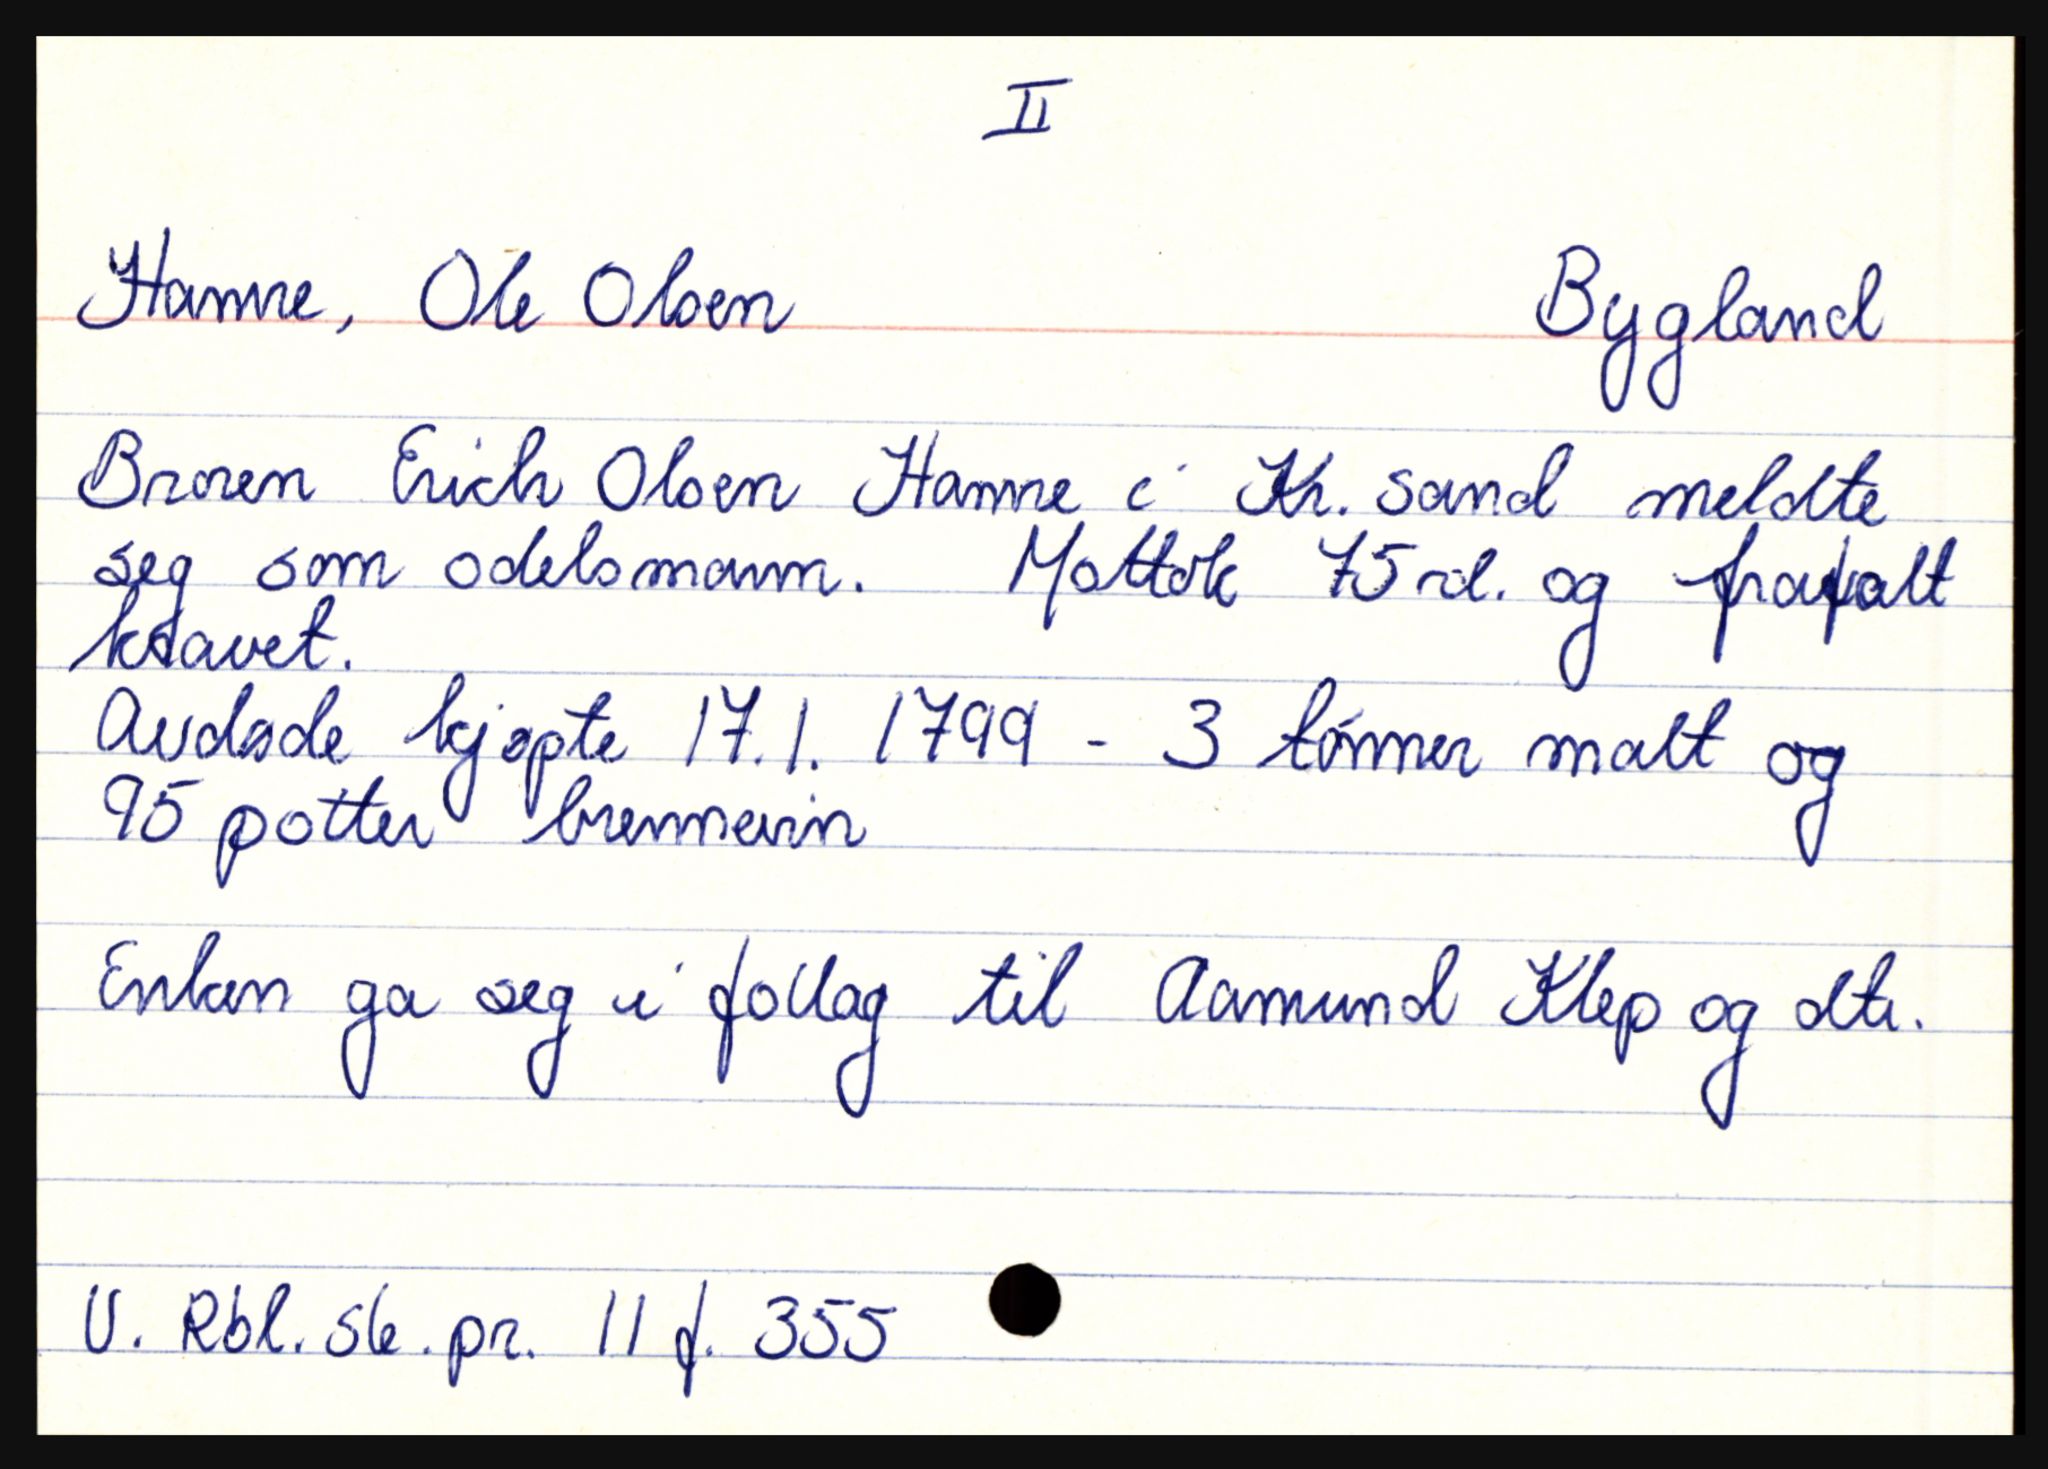 II
Hamre, Ole Olsen Bygland
Broren Erich Olsen Hamre i Kr. sand meldte
seg som odelsmann. Mottok 75 rd. og frafalt
kravet.
Avdøde kjøpte 17.1. 1799 - 3 tónner malt og
95 potter brennevin
Enken ga seg i follag til Aamund Klep og dtr.
V. Rbl. sk. pr. 11 f. 355